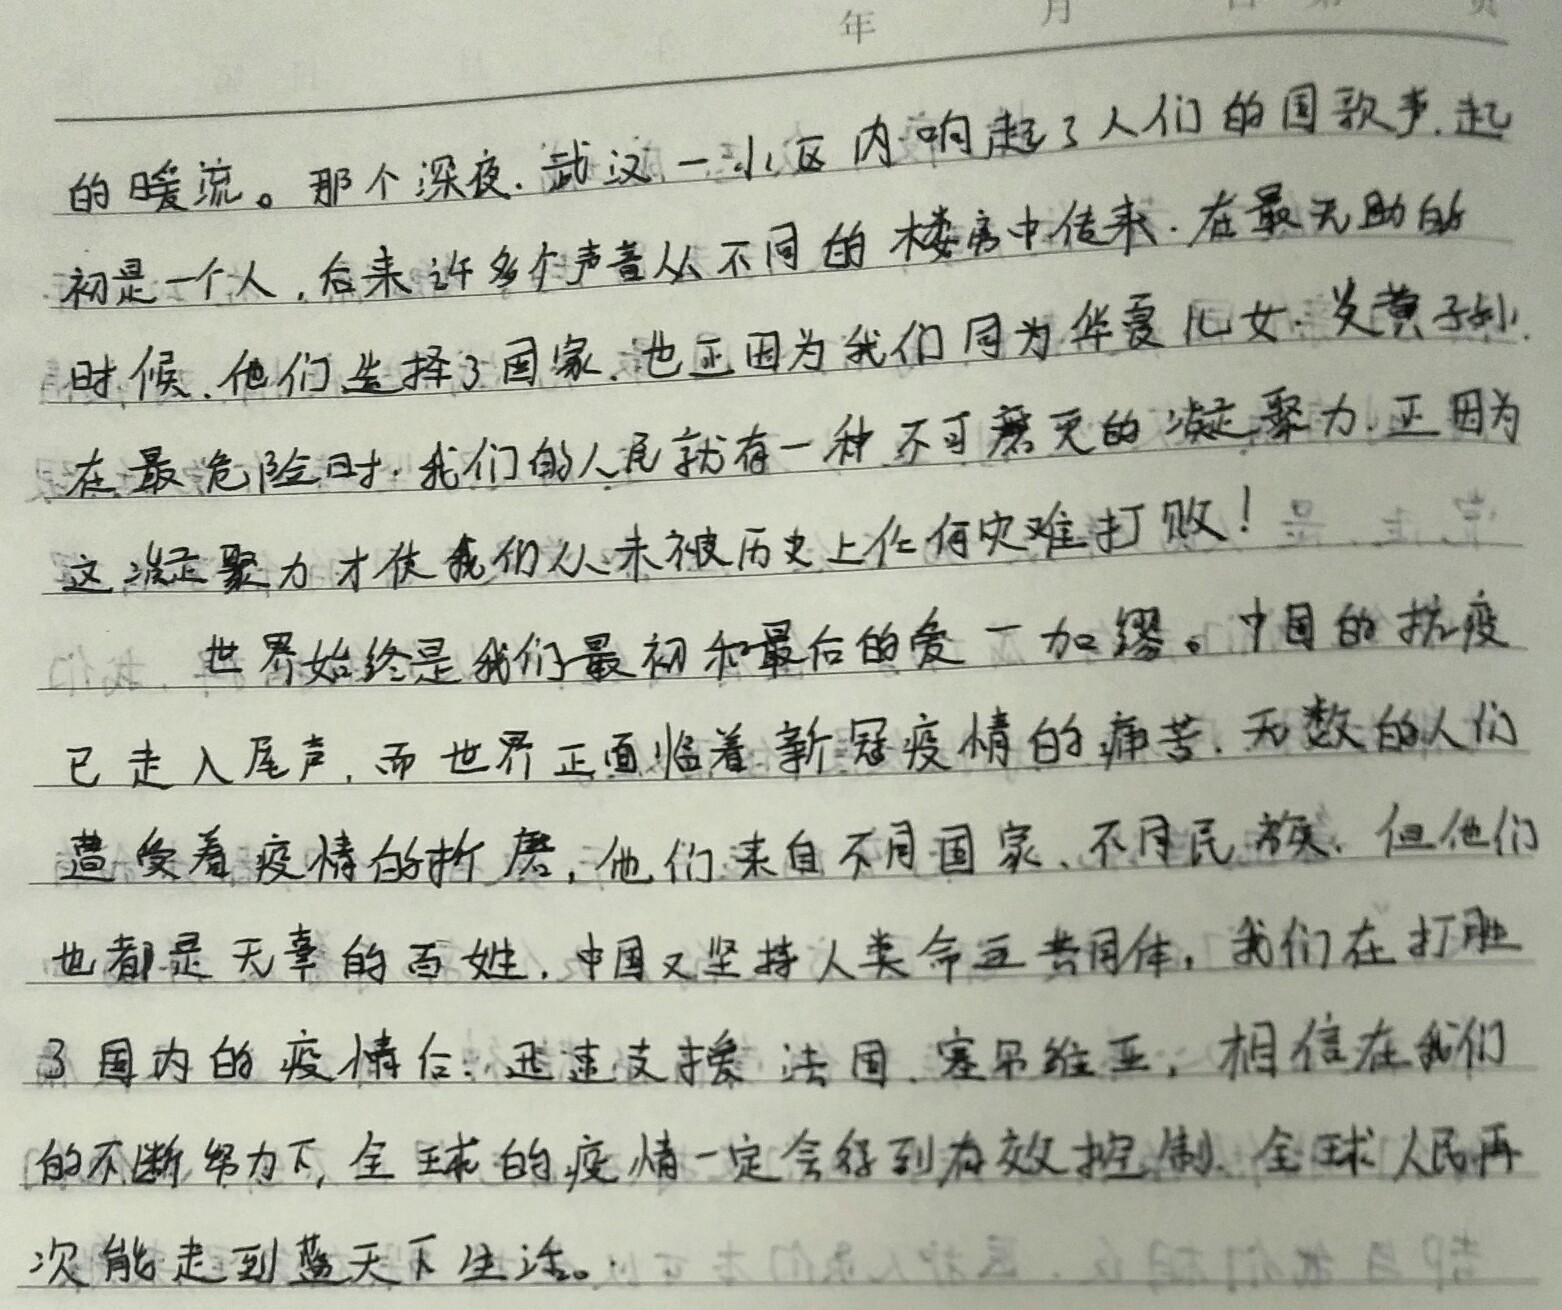 年 月 日 第 页
的暖流。那个深夜,武汉一小区内响起了人们的国歌声,起
初是一个人,后来许多个声音从不同的楼房中传来.在最无助的
时候,他们选择了国家,也正因为我们同为华夏儿女.炎黄子孙.
在最危险时.我们的人民就有一种不可磨灭的凝聚力.正因为
这凝聚力才使我们从未被历史上任何灾难打败!
世界始终是我们最初和最后的爱一加缪。中国的抗疫
已走入尾声,而世界正面临着新冠疫情的痛苦.无数的人们
遭受着疫情的折磨,他们来自不同国家、不同民族、但他们
也都是无辜的百姓,中国又坚持人类命运共同体,我们在打胜
了国内的疫情后:迅速支援法国、塞尔维亚,相信在我们
的不断努力下,全球的疫情一定会得到有效控制.全球人民再
次能走到蓝天下生活。